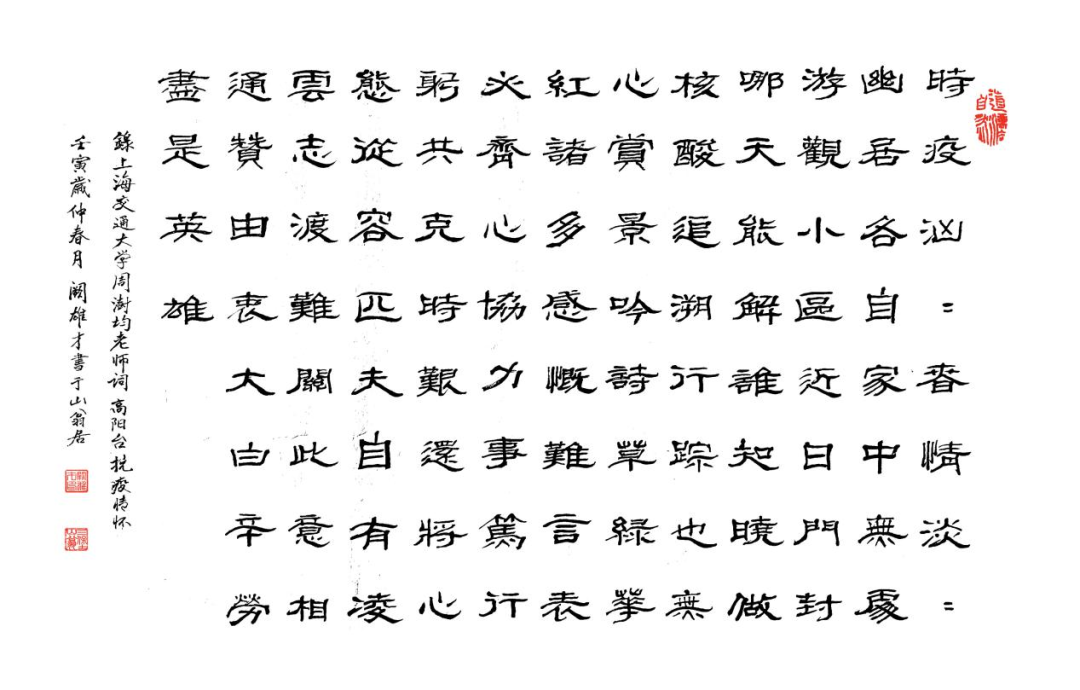 時疫汹〻春情淡〻
幽居各自家中無處
游觀小區近日門封
哪天能解誰知曉做
核酸追溯行踪也無
心賞景吟詩草綠華
紅諸多感慨難言表
必齊心協力事篤行
躬共克時艱還將心
態從容匹夫自有凌
雲志渡難關此意相
通贊由衷大白辛勞
盡是英雄
錄上海交通大学周澍均老师词 高阳台 抗疫情怀
壬寅歲仲春月 阙雄才書于山翁居